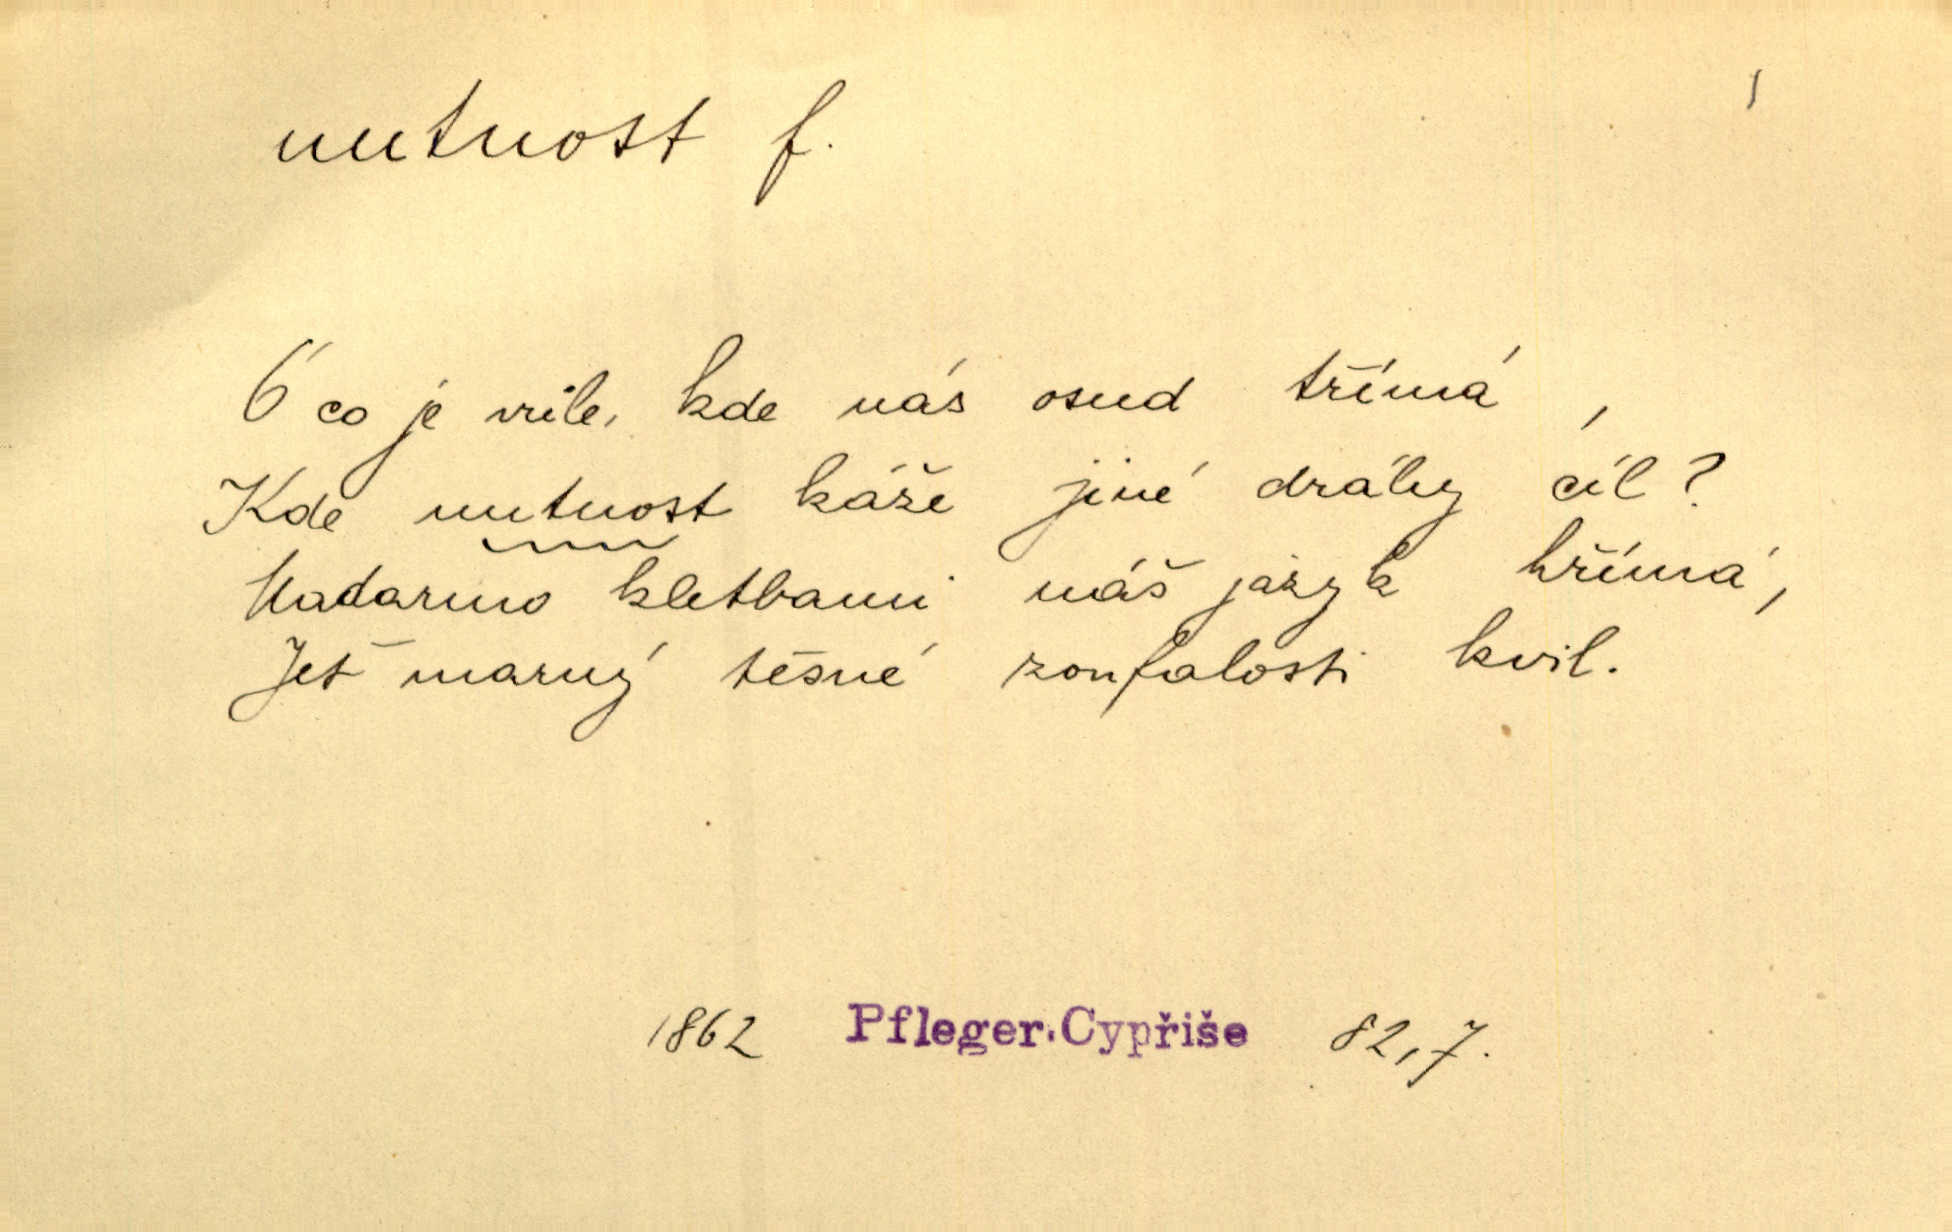 nutnost f.
Ó co je vůle, kde nás osud třímá,
Kde nutnost káže jiné dráhy cíl?
Nadarmo kletbami náš jazyk hřímá,
Jeť marný těsné zoufalosti kvil.
1862 Pfleger, Cypřiše 82,7.